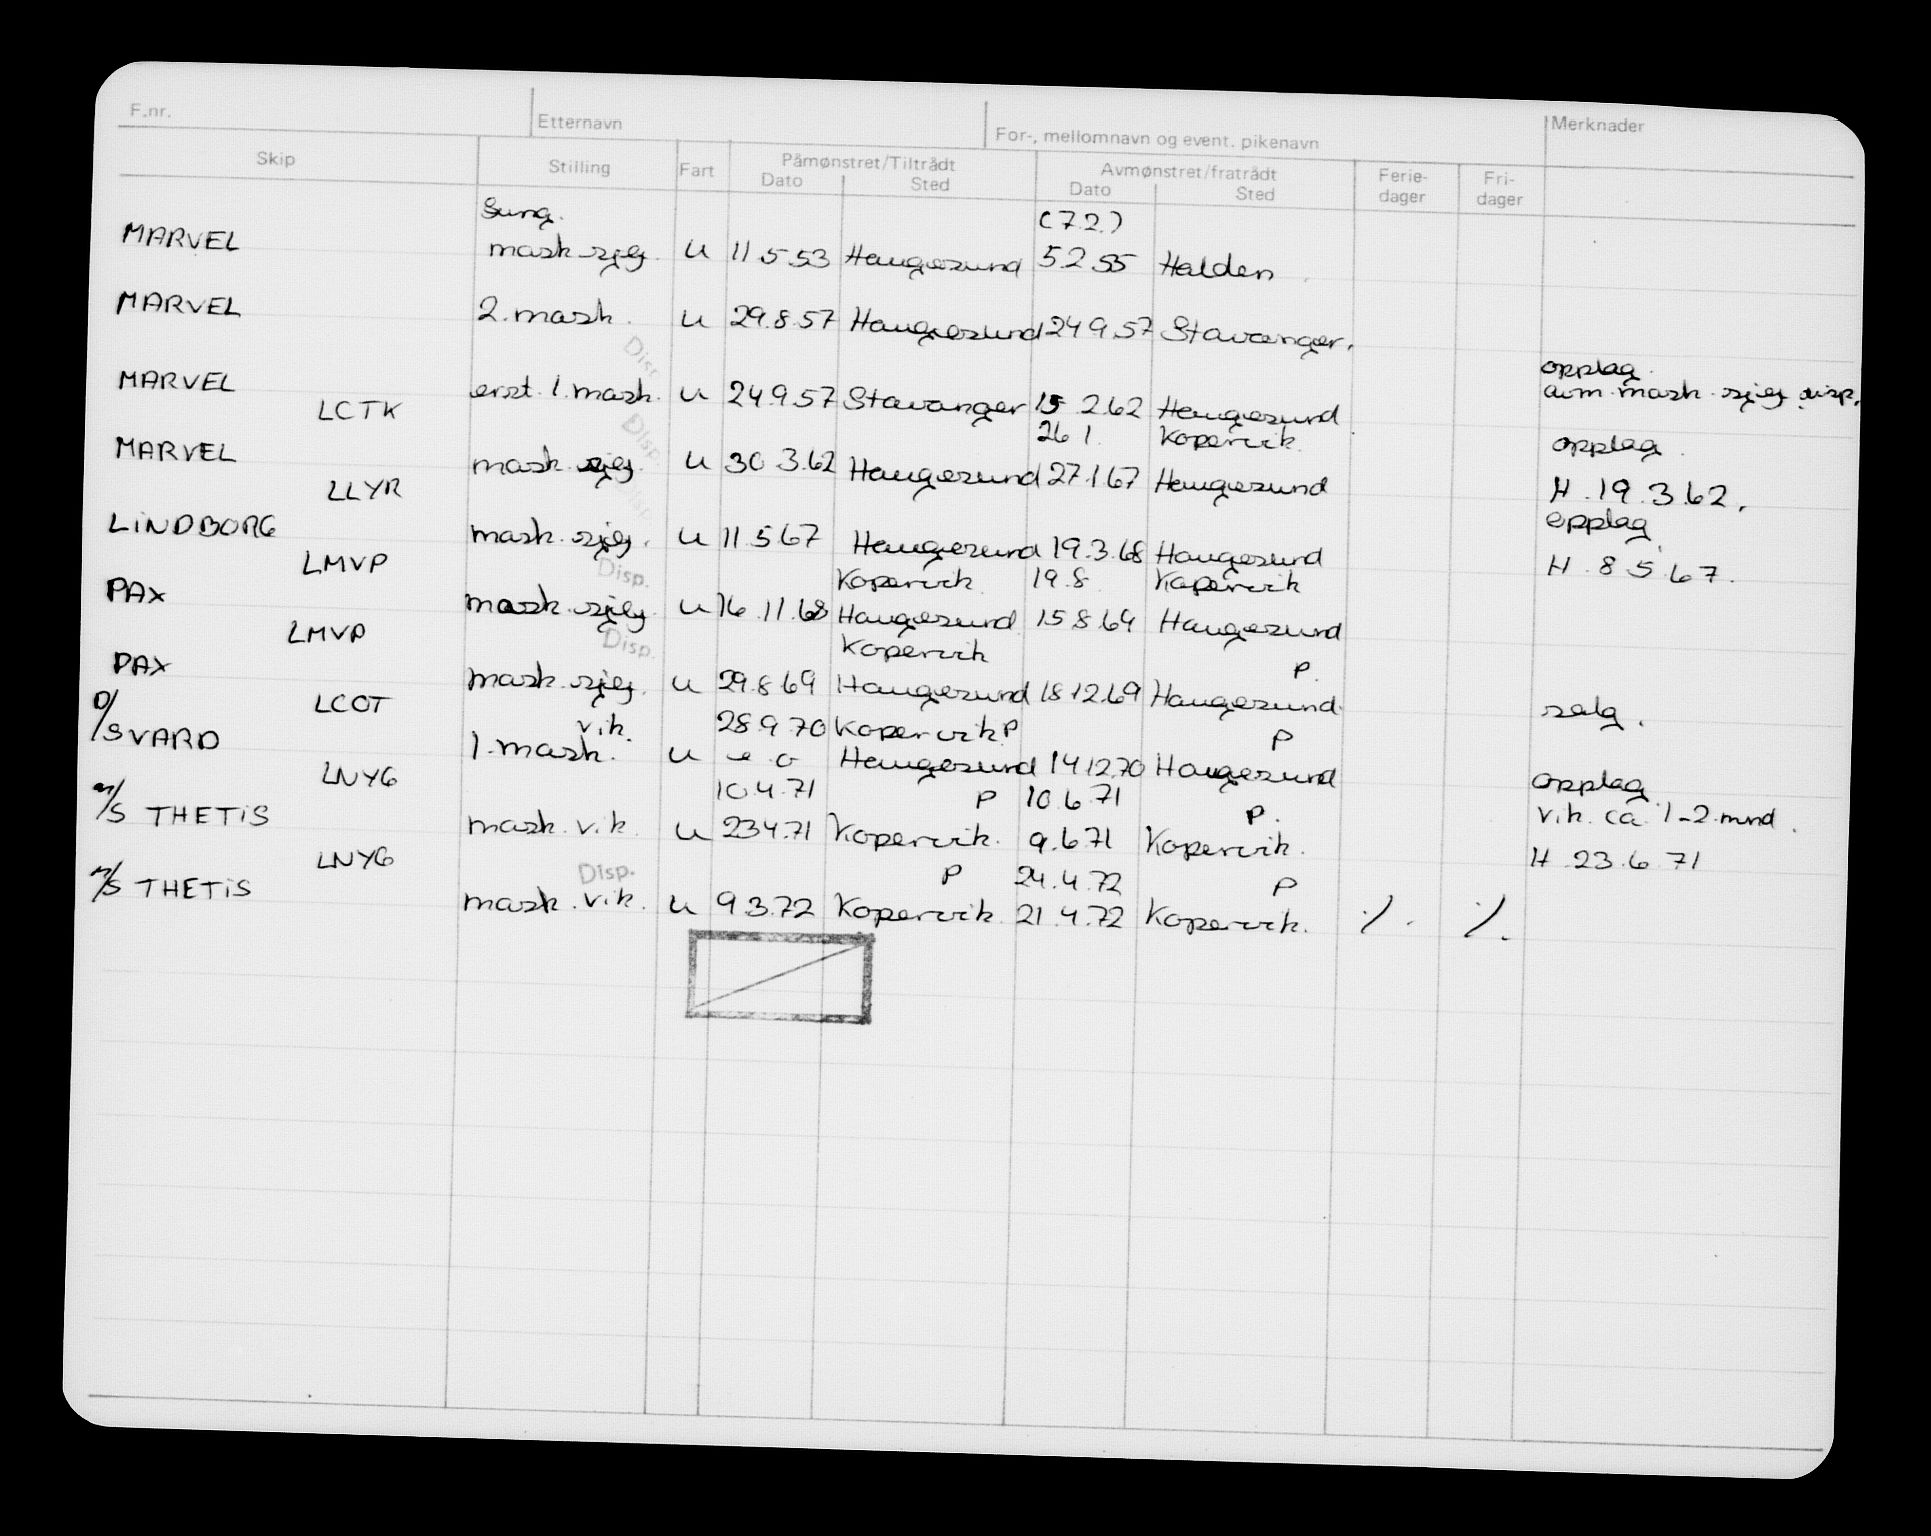 F.nr. Etternavn For-, mellomnavn og event. pikenavn Merknader
Skip Stilling Fart Påmønstret/Tiltrådt Avmønstret/fratrådt Ferie- Fri-
Dato Sted Dato Sted dager dager
fung. (7.2.)
MARVEL mask.sjef. u 11.5.53 Haugesund 5.2.55 Halden
MARVEL 2. mask. u 29.8.57 Haugesund 24.9.57 Stavanger.
Disp. opplag.
MARVEL erst. 1. mask. u 24.9.57 Stavanger 15.2.62 Haugesund avm. mask. sjef disp.
LCTK 26.1. Kopervik
Disp. opplag.
MARVEL mask. sjef. u 30.3.62 Haugesund 27.1.67 Haugesund
LLYR Disp. H. 19.3.62.
opplag
LINDBORG mask. sjef. u 11.5.67 Haugesund 19.3.68 Haugesund
LMVP Disp. Kopervik 19.8. Kopervik H. 8.5.67.
PAX mask. sjef. u 16.11.68 Haugesund 15.8.69 Haugesund
LMVP Disp. Kopervik P.
PAX mask. sjef. u 29.8.69 Haugesund 18.12.69 Haugesund
LCOT salg.
vik. 28.9.70 Kopervik P P
D/S VARD 1. mask. u Haugesund 14.12.70 Haugesund
LNYG 10.4.71 P 10.6.71 P. opplag
M/S THETIS mask. vik. u 23.4.71 Kopervik. 9.6.71 Kopervik. vik. ca 1-2 mnd.
LNYG Disp. P 24.4.72 P H. 23.6.71
M/S THETIS mask. vik. u 9.3.72 Kopervik. 21.4.72 Kopervik. ./. ./.